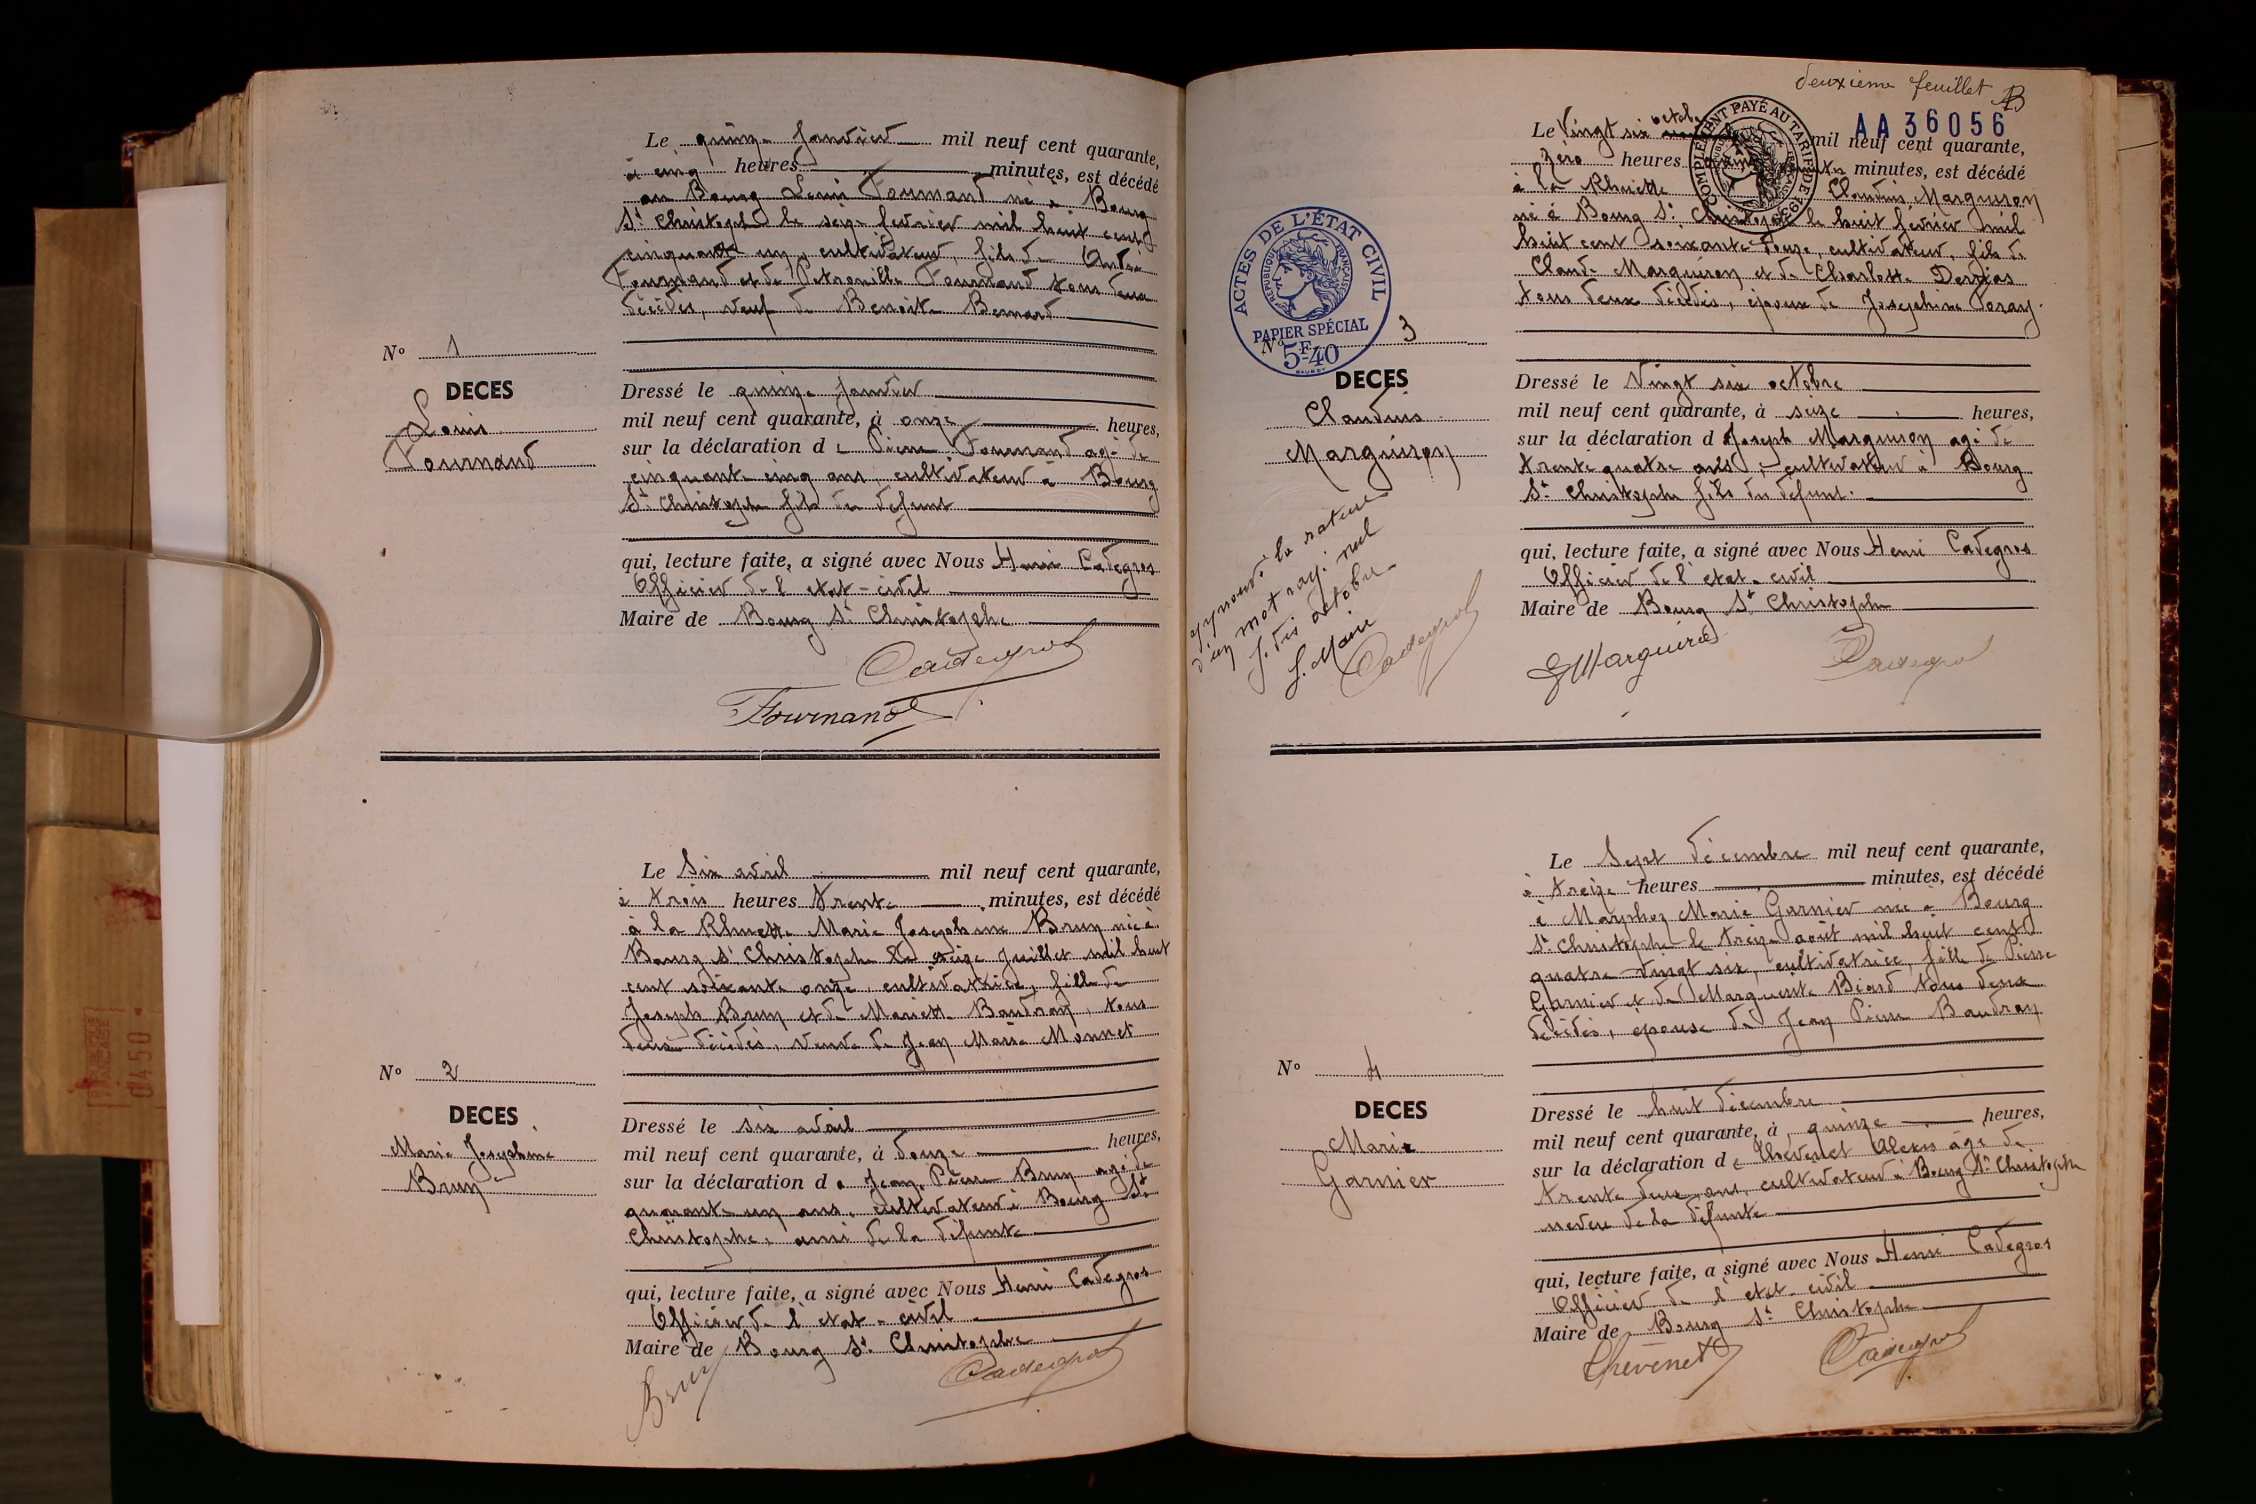 Le quinze Janvier mil neuf cent quarante,
à cinq heures minutes, est décédé
au Bourg Louis Fournand né à Bourg
St Christophe le seize fevrier mil huit cent
cinquante un, cultivateur, fils de André
Fournand et de Petronille Fournand tous deux
décédés, veuf de Benoite Bernard
No 1
DECES
Louis
Fournand
Dressé le quinze Janvier
mil neuf cent quarante, à onze heures,
sur la déclaration de Pierre Fournand agé de
cinquante cinq ans, cultivateur à Bourg
St Christophe fils du defunt
qui, lecture faite, a signé avec Nous Henri Cadegros
Officier de l'etat-civil
Maire de Bourg St Christophe
Cadegros
Fournand
Le Six avril mil neuf cent quarante,
à trois heures trente minutes, est décédé
à la Rhuette Marie Josephine Brun née à
Bourg St Christophe le seize Juillet mil huit
cent soixante onze, cultivatrice, fille de
Joseph Brun et de Mariette Baudran, tous
deux décédés, veuve de Jean Marie Monnet
No 2
DECES
Marie Josephine
Brun
Dressé le six avril
mil neuf cent quarante, à douze heures,
sur la déclaration de Jean Pierre Brun agé de
quarante un ans, cultivateur à Bourg St
Christophe, ami de la défunte
qui, lecture faite, a signé avec Nous Henri Cadegros
Officier de l'etat-civil
Maire de Bourg St Christophe
Brun
Cadegros
deuxième feuillet
AA 36056
COMPLÉMENT PAYÉ AU TARIF DE 1939
Le Vingt six octobre mil neuf cent quarante,
à zéro heures minutes, est décédé
à la Rhuette Claudius Marguiron
né à Bourg St Christophe le huit février mil
huit cent soixante douze, cultivateur, fils de
Claude Marguiron et de Charlotte Dervas
tous deux décédés, époux de Josephine Foray.
ACTES DE L'ÉTAT CIVIL
RÉPUBLIQUE FRANÇAISE
PAPIER SPÉCIAL
5F40
No 3
DECES
Claudius
Marguiron
Dressé le Vingt six octobre
mil neuf cent quarante, à seize heures,
sur la déclaration d Joseph Marguiron agé de
trente quatre ans, cultivateur à Bourg
St Christophe fils du défunt.
qui, lecture faite, a signé avec Nous Henri Cadegros
Officier de l'etat-civil
Maire de Bourg St Christophe
approuvé la rature
d'un mot rayé nul
octobre
Maire
Cadegros
J Marguiron
Cadegros
Le Sept décembre mil neuf cent quarante,
à treize heures minutes, est décédé
à Marphoz Marie Garnier née à Bourg
St Christophe le treize août mil huit cent
quatre vingt six, cultivatrice, fille de Pierre
Garnier et de Marguerite Biard tous deux
décédés, épouse de Jean Pierre Baudran
No 4
DECES
Marie
Garnier
Dressé le huit décembre
mil neuf cent quarante, à quinze heures,
sur la déclaration de Thévenet Alexis âgé de
trente deux ans, cultivateur à Bourg St Christophe
neveu de la défunte
qui, lecture faite, a signé avec Nous Henri Cadegros
Officier de l'etat-civil
Maire de Bourg St Christophe
Thévenet
Cadegros